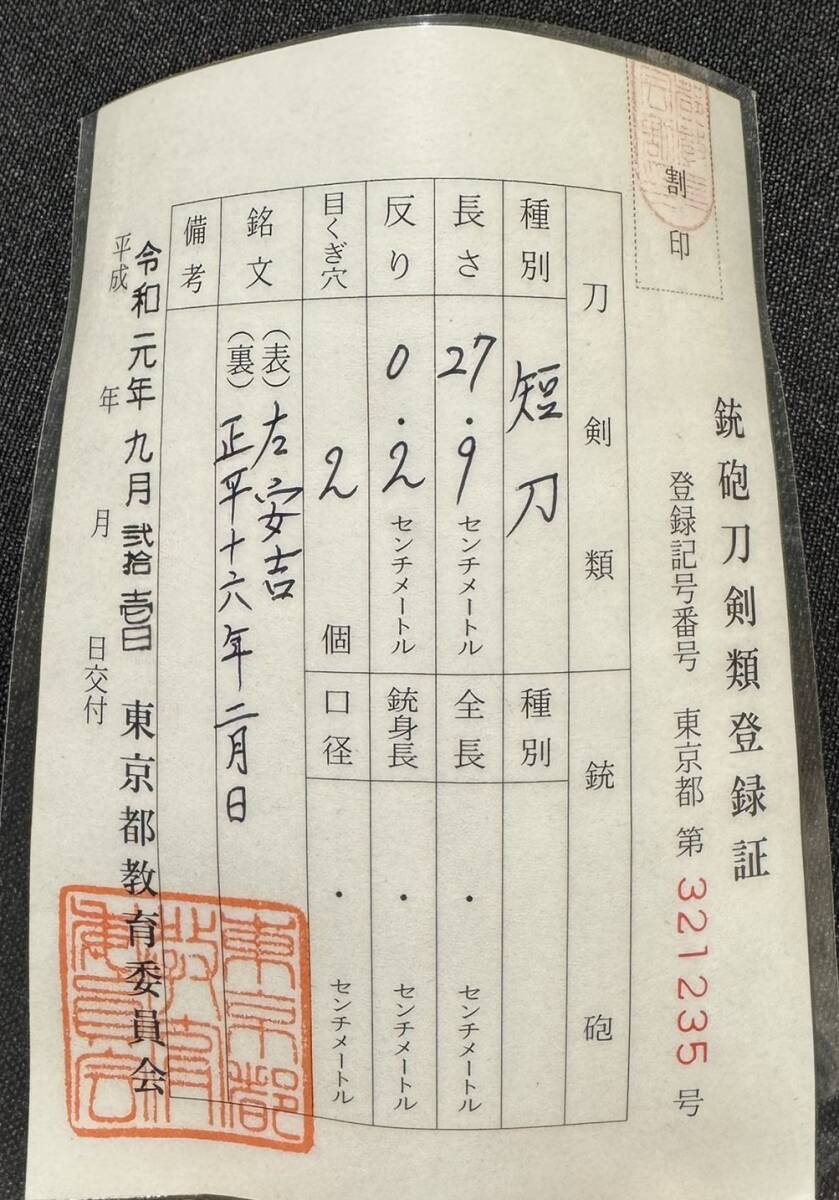 割印
銃砲刀剣類登録証
登録記号番号 東京都 第 321235 号
刀剣類
銃砲
種別 短刀
種別
長さ 27.9 センチメートル
全長 ・ センチメートル
反り 0.2 センチメートル
銃身長 ・ センチメートル
目くぎ穴 2 個
口径 ・ センチメートル
銘文 (表) 左安吉
(裏) 正平十六年二月日
備考
令和元年九月弐拾壱日 東京都教育委員会
平成 年 月 日交付
東京都
教育
委員会